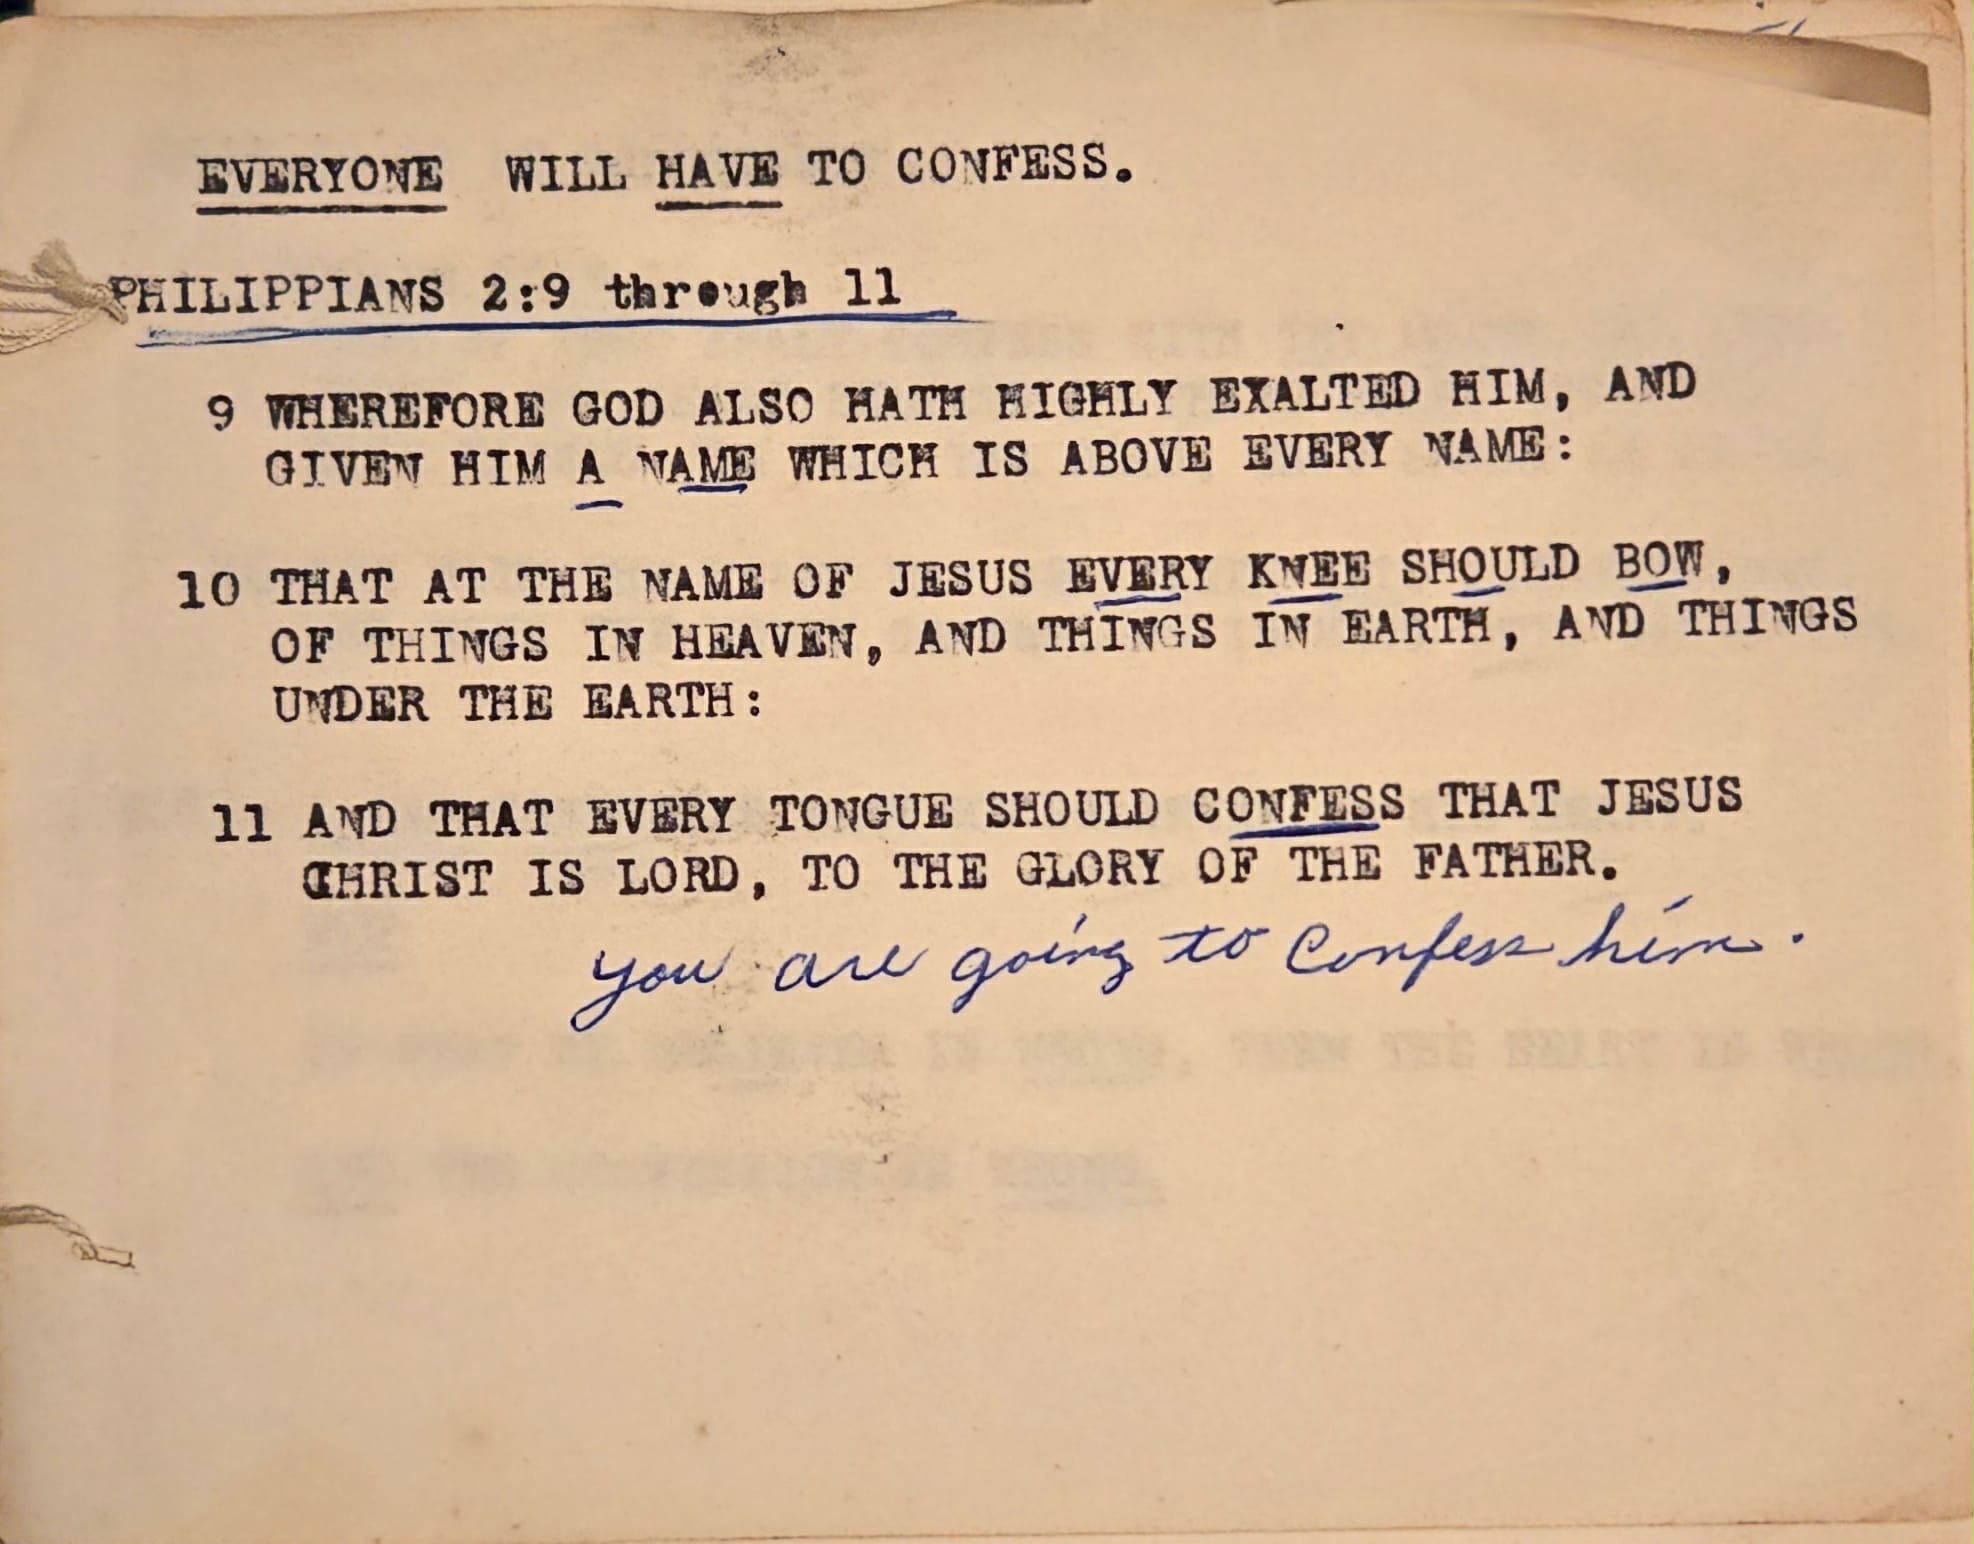 EVERYONE WILL HAVE TO CONFESS.
PHILIPPIANS 2:9 through 11
9 WHEREFORE GOD ALSO HATH HIGHLY EXALTED HIM, AND
GIVEN HIM A NAME WHICH IS ABOVE EVERY NAME:
10 THAT AT THE NAME OF JESUS EVERY KNEE SHOULD BOW,
OF THINGS IN HEAVEN, AND THINGS IN EARTH, AND THINGS
UNDER THE EARTH:
11 AND THAT EVERY TONGUE SHOULD CONFESS THAT JESUS
CHRIST IS LORD, TO THE GLORY OF THE FATHER.
you are going to Confess him.